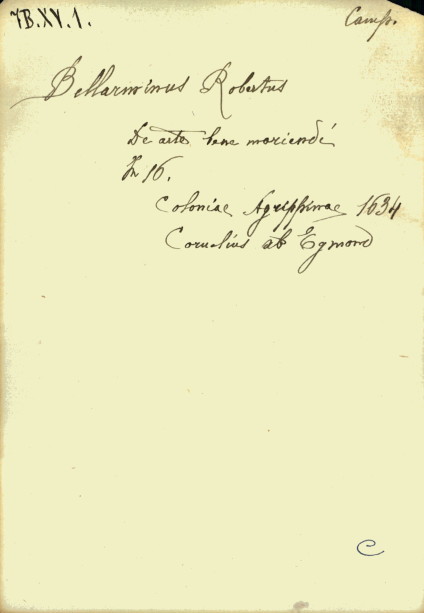 7B.XV.1.
Camp.
Bellarminus Robertus
De arte bene moriendi
In 16.
Coloniae Agrippinae 1634
Cornelius ab Egmond
C